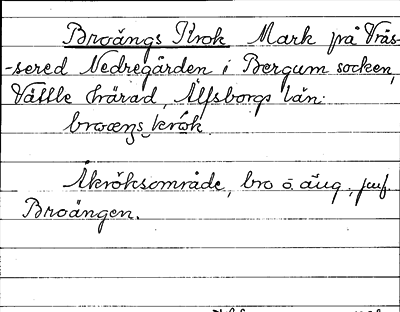 Broängs Krok Mark på Vräs-
-sered Nedregården i Bergum socken,
Vättle härad, Älfsborgs län.
broæŋs krok
Åkröksområde, bro o. äng, jmf.
Broängen.